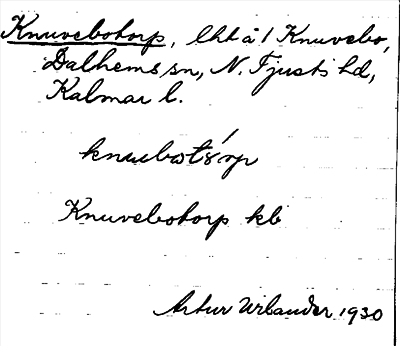 Knuvebotorp, lht å 1 Knuvebo,
Dalhems sn, N. Tjusts hd,
Kalmar l.
Knuvebotorp kb
Artur Urbander 1930